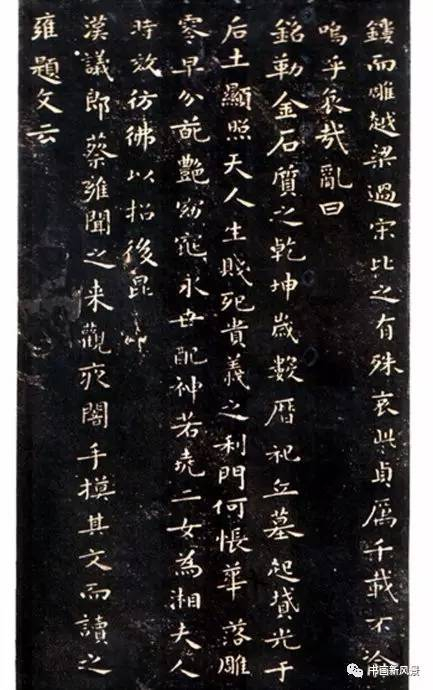 鏤而雕越梁過宋比之有殊哀此貞厲千載不渝
嗚乎哀哉亂曰
銘勒金石質之乾坤歲數曆祀丘墓起墳光于
后土顯照天人生賤死貴義之利門何悵華落雕
零早分葩艷窈窕永世配神若堯二女為湘夫人
時效彷彿以招後昆
漢議郎蔡雍聞之来觀夜闇手摸其文而讀之
雍題文云
书画新风景